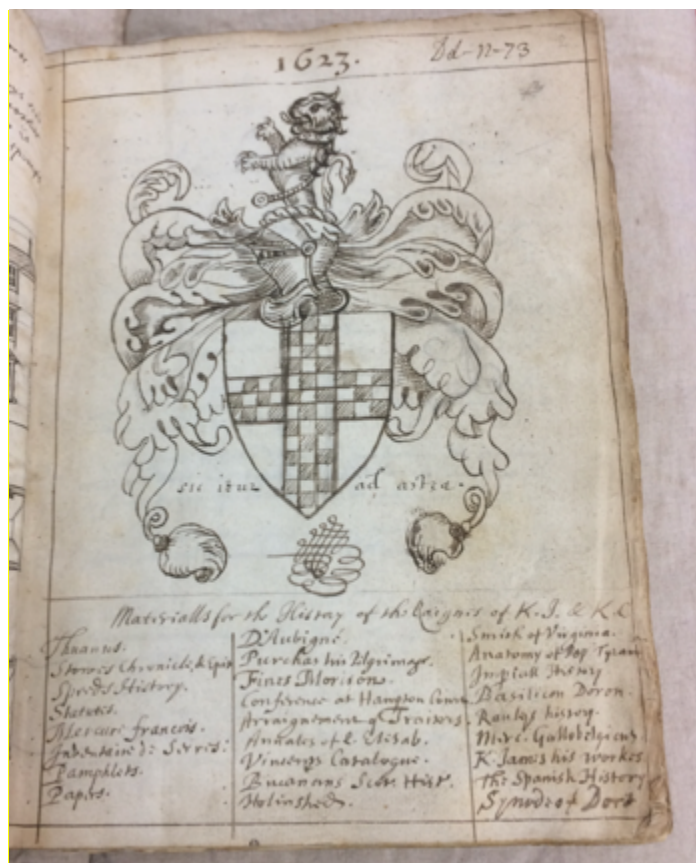 1623.
Dd-N-73
sic itur ad astra.
Materialls for the History of the Raignes of K. J. & K C
Thuanus.
Stowes Chronicle, & Epit
Speeds History.
Statutes.
Mercure francois.
Inventaire de Serres:
Pamphlets.
Papers.
D'Aubigne.
Purchas his Pilgrimage.
Fines Morison.
Conference at Hampton Court
Arraignement of Traitors.
Annales of Q. Elisab.
Vincents Catalogue.
Bucanans Scot. Hist.
Holinshed.
Smith of Virginia.
Anatomy of Pop Tyran
Impiall History
Basilicon Doron.
Raulys history.
Merc. Gallobelgicus
K James his workes
The Spanish History
Synode of Dort